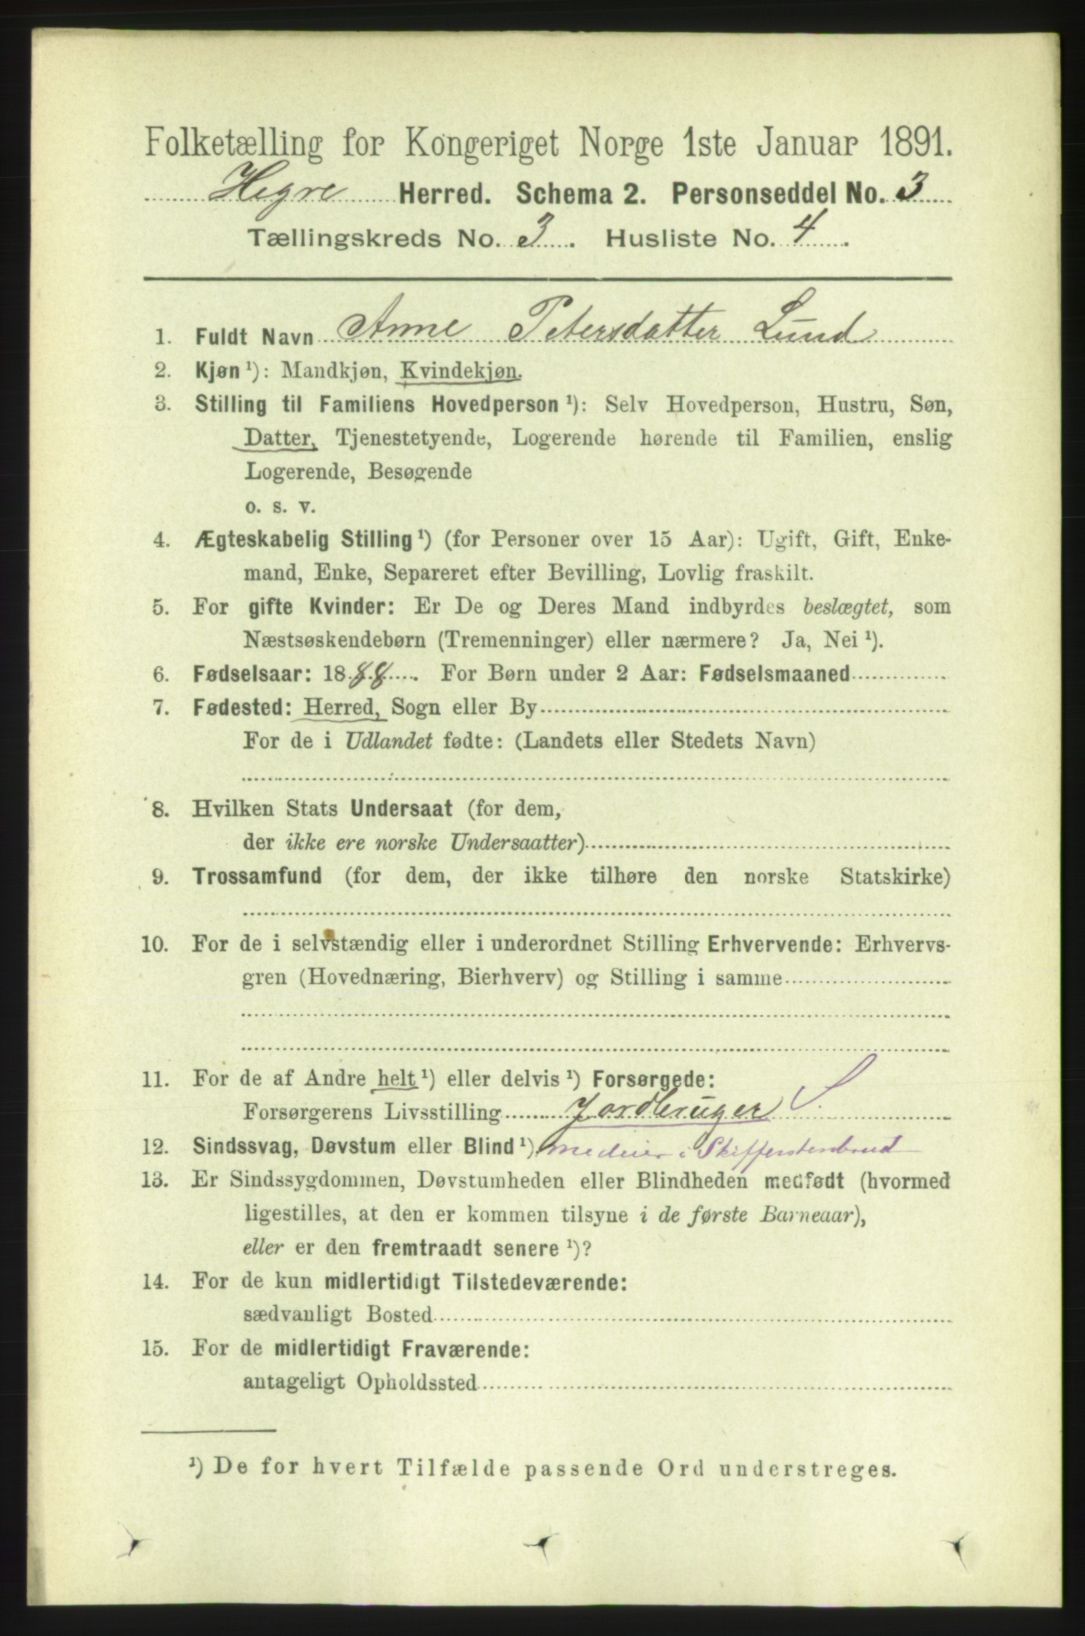 Folketælling for Kongeriget Norge 1ste Januar 1891.
Hegre Herred. Schema 2. Personseddel No. 3
Tællingskreds No. 3. Husliste No. 4.
1. Fuldt Navn Anne Petersdatter Lund
2. Kjøn ¹): Mandkjøn, Kvindekjøn.
3. Stilling til Familiens Hovedperson ¹): Selv Hovedperson, Hustru, Søn,
Datter, Tjenestetyende, Logerende hørende til Familien, enslig
Logerende, Besøgende
o. s. v.
4. Ægteskabelig Stilling ¹) (for Personer over 15 Aar): Ugift, Gift, Enke-
mand, Enke, Separeret efter Bevilling, Lovlig fraskilt.
5. For gifte Kvinder: Er De og Deres Mand indbyrdes beslægtet, som
Næstsøskendebørn (Tremenninger) eller nærmere? Ja, Nei ¹).
6. Fødselsaar: 1888. For Børn under 2 Aar: Fødselsmaaned
7. Fødested: Herred, Sogn eller By
For de i Udlandet fødte: (Landets eller Stedets Navn)
8. Hvilken Stats Undersaat (for dem,
der ikke ere norske Undersaatter)
9. Trossamfund (for dem, der ikke tilhøre den norske Statskirke)
10. For de i selvstændig eller i underordnet Stilling Erhvervende: Erhvervs-
gren (Hovednæring, Bierhverv) og Stilling i samme
11. For de af Andre helt ¹) eller delvis ¹) Forsørgede:
Forsørgerens Livsstilling Jordbruger S.
12. Sindssvag, Døvstum eller Blind ¹) medeier i Skifferstenbrud
13. Er Sindssygdommen, Døvstumheden eller Blindheden medfødt (hvormed
ligestilles, at den er kommen tilsyne i de første Barneaar),
eller er den fremtraadt senere ¹)?
14. For de kun midlertidigt Tilstedeværende:
sædvanligt Bosted
15. For de midlertidigt Fraværende:
antageligt Opholdssted
¹) De for hvert Tilfælde passende Ord understreges.